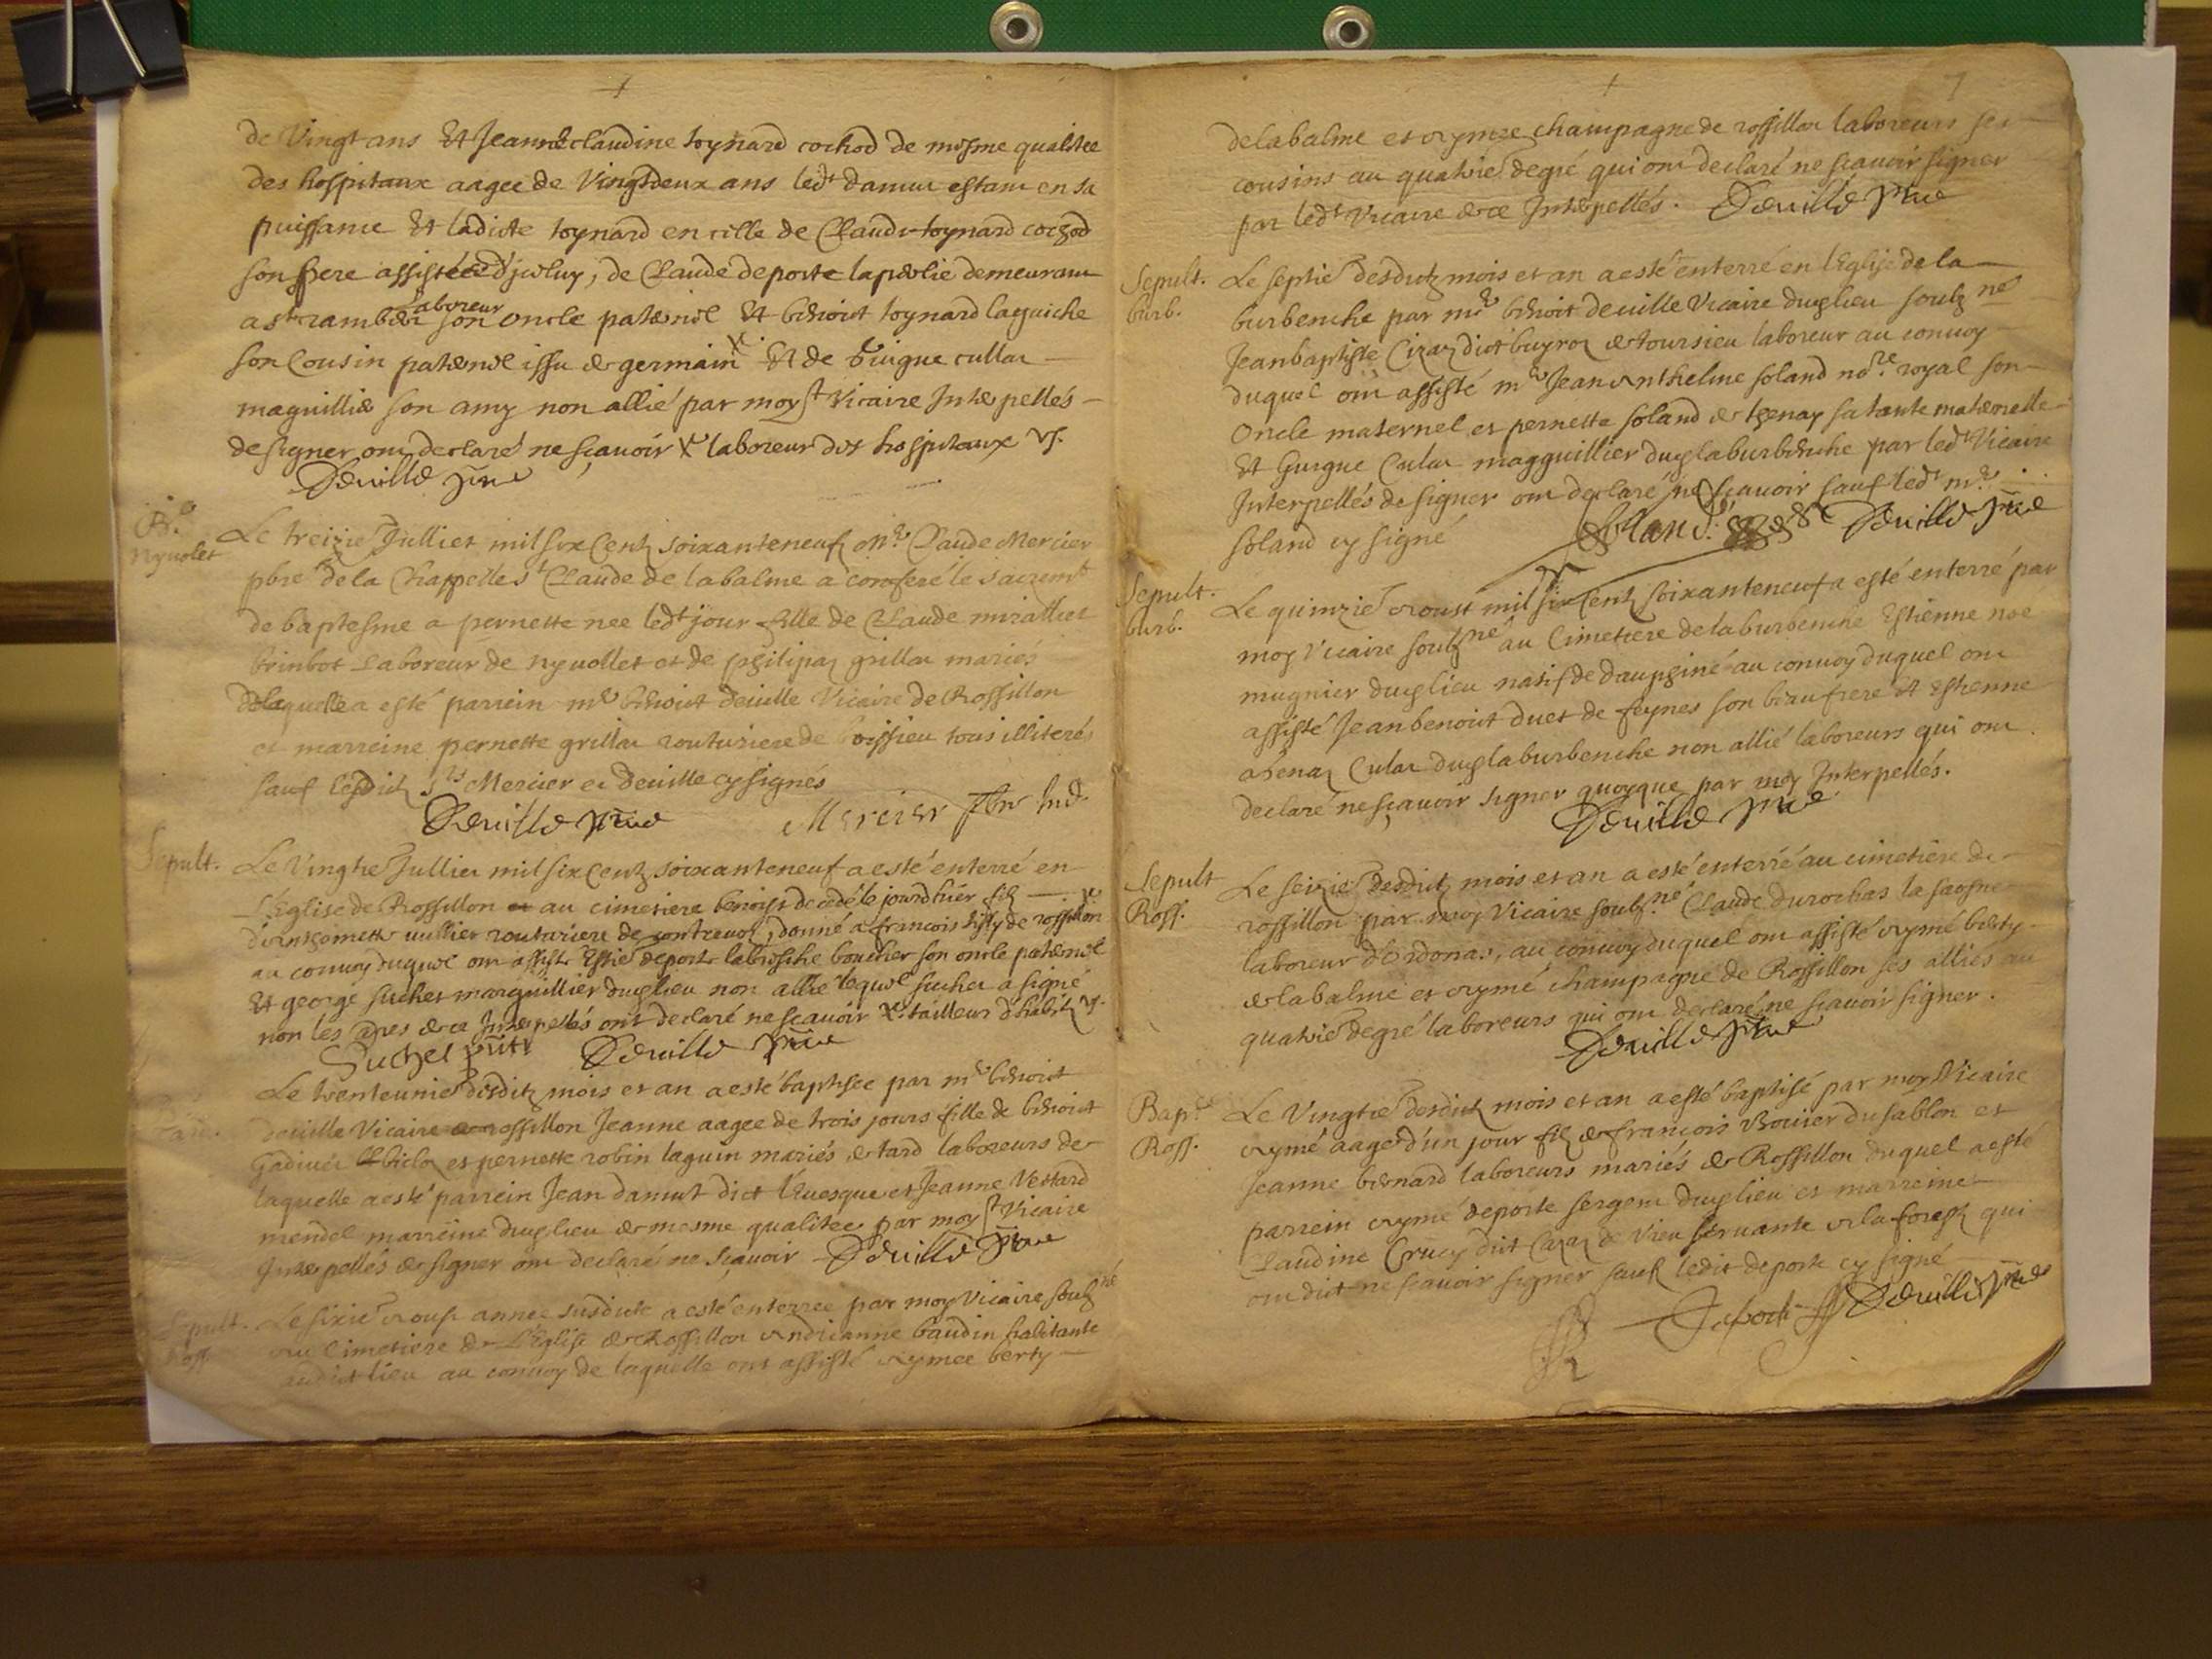 de Vingt ans Et Jeanne claudine toynard cochod de mesme qualitee
des hospitaux aagee de Vingtdeux ans ledt damur estant en sa
puissance Et ladicte toynard en celle de Claude toynard cochod
son frere assistée d'iceluy, de Claude deporte demeurant
a st rambert laboreur son oncle paternel Et benoict toynard laguiche
son Cousin paternel issu de germain Et de cullat
maguillier son amy non allié par moy st Vicaire Interpellés
de signer ont declaré ne sçavoir laboreur des hospitaux
Deville
B.
Nyvolet
Le treizie Jullier mil six Centz soixanteneuf mre Claude Mercier
pbre de la Chappelle st Claude de la balme a conferé le sacremt
de baptesme a pernette nee ledt jour fille de Claude
Laboreur de nyvollet et de grillat mariés
de laquelle a esté parrein mre benoict deville Vicaire de Rossillon
et marreine pernette grillat routuriere de boissieu tous illiterés
sauf lesdictz srs Mercier et deville cy signés
Deville Mercier
Sepult.
Le Vingtie Jullier mil six Centz soixanteneuf a esté enterré en
L'Eglise de Rossillon au cimetiere benoist decedé le jourd'huier filz
vullier routuriere de contrevoz, donné a francois de rossillon
au convoy duquel ont assisté Estie deporte boucher son oncle paternel
Et george suchet marguillier dudt lieu non allié lequel suchet a signé
non les de ce Interpellés ont declaré ne scavoir tailleur d'habitz
Suchet Deville
Le trenteunie desditz mois et an a esté baptisee par mre benoict
deville Vicaire de rossillon Jeanne aagee de trois jours fille de benoict
et pernette robin laguin mariés de tard laboreurs de
laquelle a esté parrein Jean damur dict Evesque et Jeanne Vestard
mendel marreine dudt lieu de mesme qualitee par moy st Vicaire
Interpellés de signer ont declaré ne sçavoir Deville
Sepult.
Ross.
Le sixie aoust annee susdicte a esté enterree par moy Vicaire soubzne
au Cimetiere de L'Eglise de Rossillon andreanne baudin habitante
audict lieu au convoy de laquelle ont assisté aymee berty
7
de la balme et aymee champagne de rossillon laboreurs ses
cousins au quatrie degré qui ont declaré ne scavoir signer
par ledt Vicaire de ce Interpellés. Deville
Sepult.
burb.
Le septie desdictz mois et an a esté enterré en l'Eglise de la
burbenche par mre benoit deville Vicaire dudt lieu soubz ne
Jeanbaptiste dict buyroz de toursieu laboreur au convoy
duquel ont assisté mre Jean anthelme soland nore royal son
Oncle maternel et pernette soland de thenay sa tante maternelle
Et Guigue Culat magguillier dudt laburbenche par ledt Vicaire
Interpellés de signer ont declaré ne scavoir sauf ledt mre
soland cy signé Soland Deville
Sepult.
burb.
Le quinzie aoust mil six Centz soixanteneuf a esté enterré par
moy Vicaire soubzne au Cimetiere de la burbenche Estienne noe
mugnier dudt lieu natif de dauphiné au convoy duquel ont
assisté Jean benoict duet de feynes son beaufrere Et Estienne
Culat dudt laburbenche non allié laboreurs qui ont
declaré ne sçavoir signer quoyque par moy Interpellés.
Deville
Sepult
Ross.
Le seizie desdictz mois et an a esté enterré au cimetiere de
rossillon par moy Vicaire soubz.né Claude durochas la saosne
laboreur d'Ordonas, au convoy duquel ont assisté aymé berty
de la balme et aymé champagne de Rossillon ses alliés au
quatrie degré laboreurs qui ont declaré ne scavoir signer.
Deville
Bap.
Ross.
Le Vingtie desdictz mois et an a esté baptisé par moy Vicaire
aymé aagé d'un jour filz de francois Bovier du sablon et
Jeanne bernard laboreurs mariés de Rossillon duquel a esté
parrein aymé deporte sergent dudt lieu et marreine
Claudine Crucy dict de Vieu servante a la forest qui
ont dict ne scavoir signer sauf ledit deporte cy signé
Deporte Deville